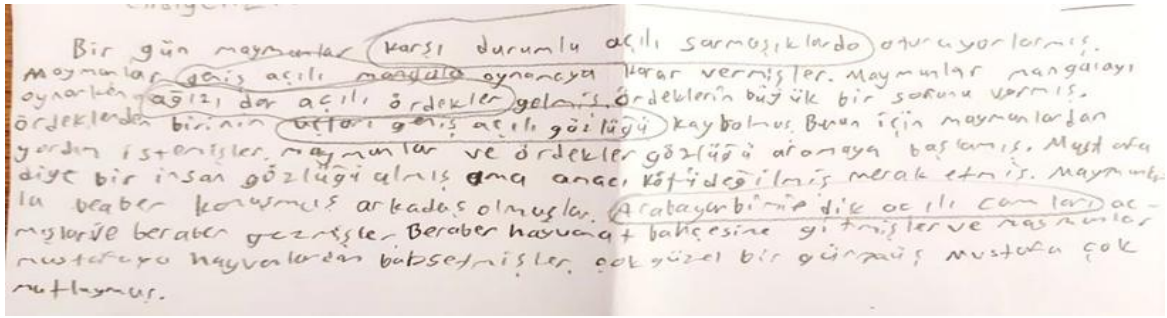 Bir gün maymunlar karşı durumlu açılı sarmaşıklarda oturuyorlarmış.
Maymunlar geniş açılı mangala oynamaya karar vermişler. Maymunlar mangalayı
oynarken ağızı dar açılı ördekler gelmiş. ördeklerin büyük bir sorunu varmış.
ördeklerden birinin uçları geniş açılı gözlüğü kaybolmuş. Bunun için maymunlardan
yardım istemişler. maymunlar ve ördekler gözlüğü aramaya başlamış. Mustafa
diye bir insan gözlüğü almış ama amacı kötü değilmiş merak etmiş.
la beaber konuşmuş arkadaş olmuşlar. dik açılı camları aç-
mışlar ve beraber gezmişler. Beraber hayvanat bahçesine gitmişler ve maymunlar
mustafaya hayvanlardan bahsetmişler. çok güzel bir günmüş mustafa çok
mutluymuş.